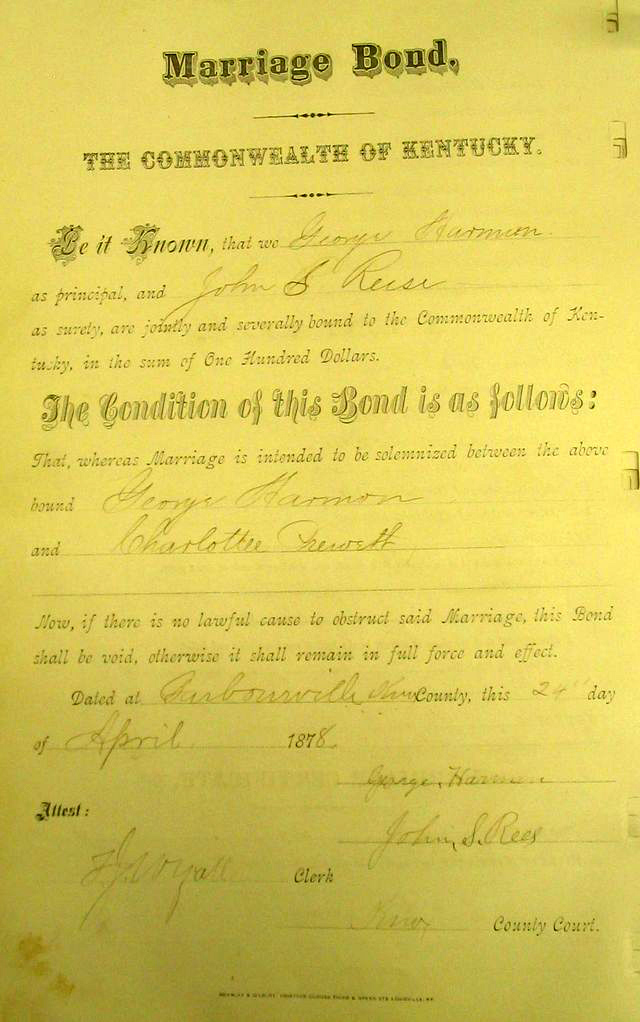 Marriage Bond.
THE COMMONWEALTH OF KENTUCKY.
Be it Known, that we George Harmon
as principal, and John S Reese
as surety, are jointly and severally bound to the Commonwealth of Ken-
tucky, in the sum of One Hundred Dollars.
The Condition of this Bond is as follows:
That, whereas Marriage is intended to be solemnized between the above
bound George Harmon
and Charlottee Prewett
Now, if there is no lawful cause to obstruct said Marriage, this Bond
shall be void, otherwise it shall remain in full force and effect.
Dated at Barbourville, Knox County, this 24" day
of April 1878.
George Harmon
Attest:
John, S. Rees
Clerk
Knox County Court.